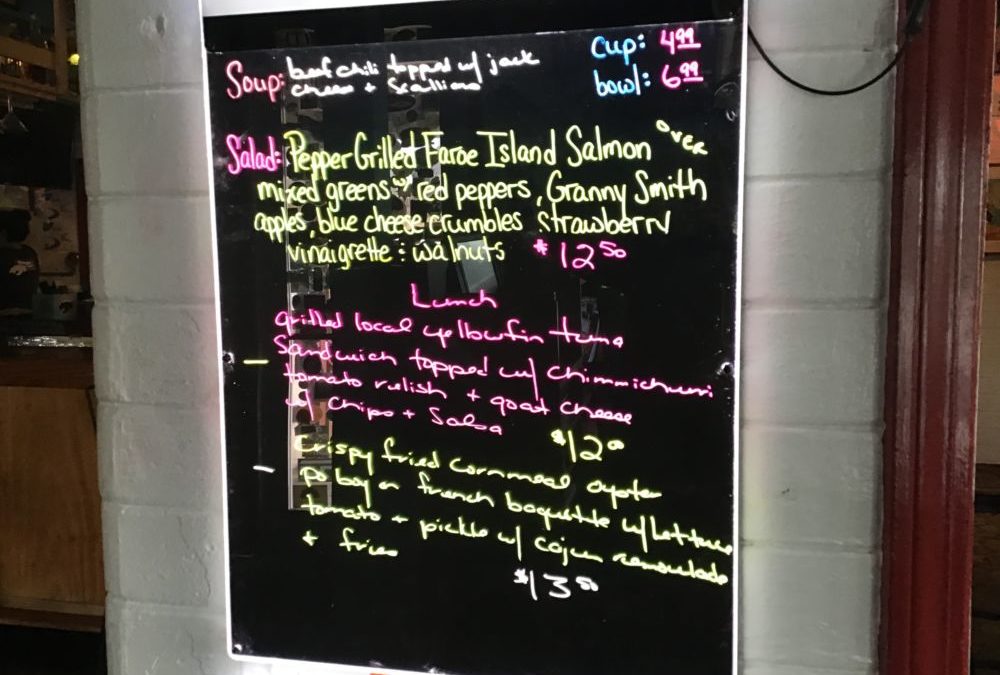 Soup: beef chili topped w/ jack
cheese + Scallions
Cup: 4.99
bowl: 6.99
Salad: Pepper Grilled Faroe Island Salmon over
mixed greens w/ red peppers, Granny Smith
apples, blue cheese crumbles strawberry
vinaigrette : walnuts $12.50
Lunch
grilled local yellowfin tuna
Sandwich topped w/ chimmichurri
tomato relish + goat cheese
w/ chips + Salsa
$12.0
Crispy fried cornmeal oyster
po boy on french baguette w/ lettuce
tomato + pickle w/ cajun remoulade
+ fries
$13.50